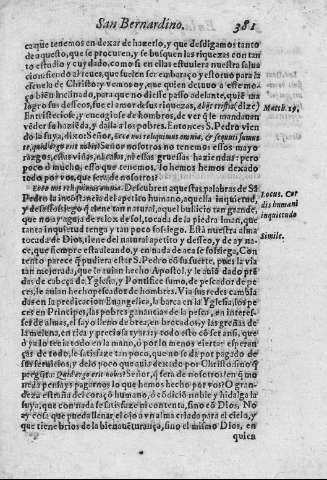 San Bernardino. 381
ca que tenemos en dexar de hazerlo, y que desdigamos tanto
de aquesto, que se procuren, y se busquen las riquezas con tan
to estudio y cuydado, como si en ellas estuuiera nuestra salua
cion siendo al reues, que suelen ser embaraço y estoruo para la
escuela de Christo y vemos oy, que quien detuuo a este mo-
ço bien inclinado, para que no diesse passo adelante, quiē ma
logro sus desseos, fue el amor de sus riquezas, abijt tristis (dize)
Entristeciose, y encogiose de hombros, de ver q̃ le mandauan
Matth 19.
vēder su haziēda, y dalla a los pobres. Entonces S. Pedro vien
do la suya, dixo: Señor, Ecce nos reliquimus omnia, & sequuti sumus
te, quid ergo erit nobis? Señor nosotros no tenemos essos mayo
razgos, essas viñas, ni casas, ni essas gruessas haziendas: pero
poco ò mucho, esso que tenemos, lo hemos hemos dexado
todo por vos, que sera de nosotros?
Ecce nos reliquimus omnia. Descubren aquestas palabras de Sā
Pedro la inconstācia del apetito humano, aquella inquietud,
y desassossiego q̃ tiene tan natural, aquel bullicio tan grande,
Locus. Cor
dis humani
inquietudo
que no ay aguja de relox de sol, tocada de la piedra Iman, que
tanta inquietud tenga y tan poco sossiego. Està nuestra alma
tocada de Dios, tiene del natural apetito y desseo, y de ay na-
Simile.
ce, que siempre esta alteando, y en nada de aca se sossiega. Con
tento parece q̃ pudiera estar S. Pedro cō su suerte, pues la via
tan mejorada, que le auian hecho Apostol, y le auiā dado prē
das de cabeça de Yglesia, y Pontifice sumo, de pescador de pe-
ces, le auian hecho pescador de hombres. Via sus redes cambia
das en la predicacion Euangelica, la barca en la Yglesia, los pe
ces en Principes, las pobres ganancias de la pesca, en interes-
ses de almas, el sayo lleno de breas, en brocados, y las greñas de
la melena, en rica y preciosa tyara: y todo esto cō ser ansi, que
ò ya lo tenia todo en la mano, ò por lo menos ciertas esperan
ças de todo, le satisfaze tan poco, que no se da por pagado de
sus seruicios, y delo poco que auia dexado por Christo sino q̃
pregūta: Quid ergo erit nobis? Señor, q̃ sera de nosotros? en q̃ mo
neda pensays pagarnos lo que hemos hecho por vos? O gran-
deza estraña del coraçō humano, ò cōdiciō noble y hidalga la
suya, que con nada se satisfaze ni contenta, sino cō Dios. No
ay cosa que pueda llenar el ojo a vn alma criada para el cielo, y
que tiene brios de la bienauēturança, sino el mismo Dios, en
quien